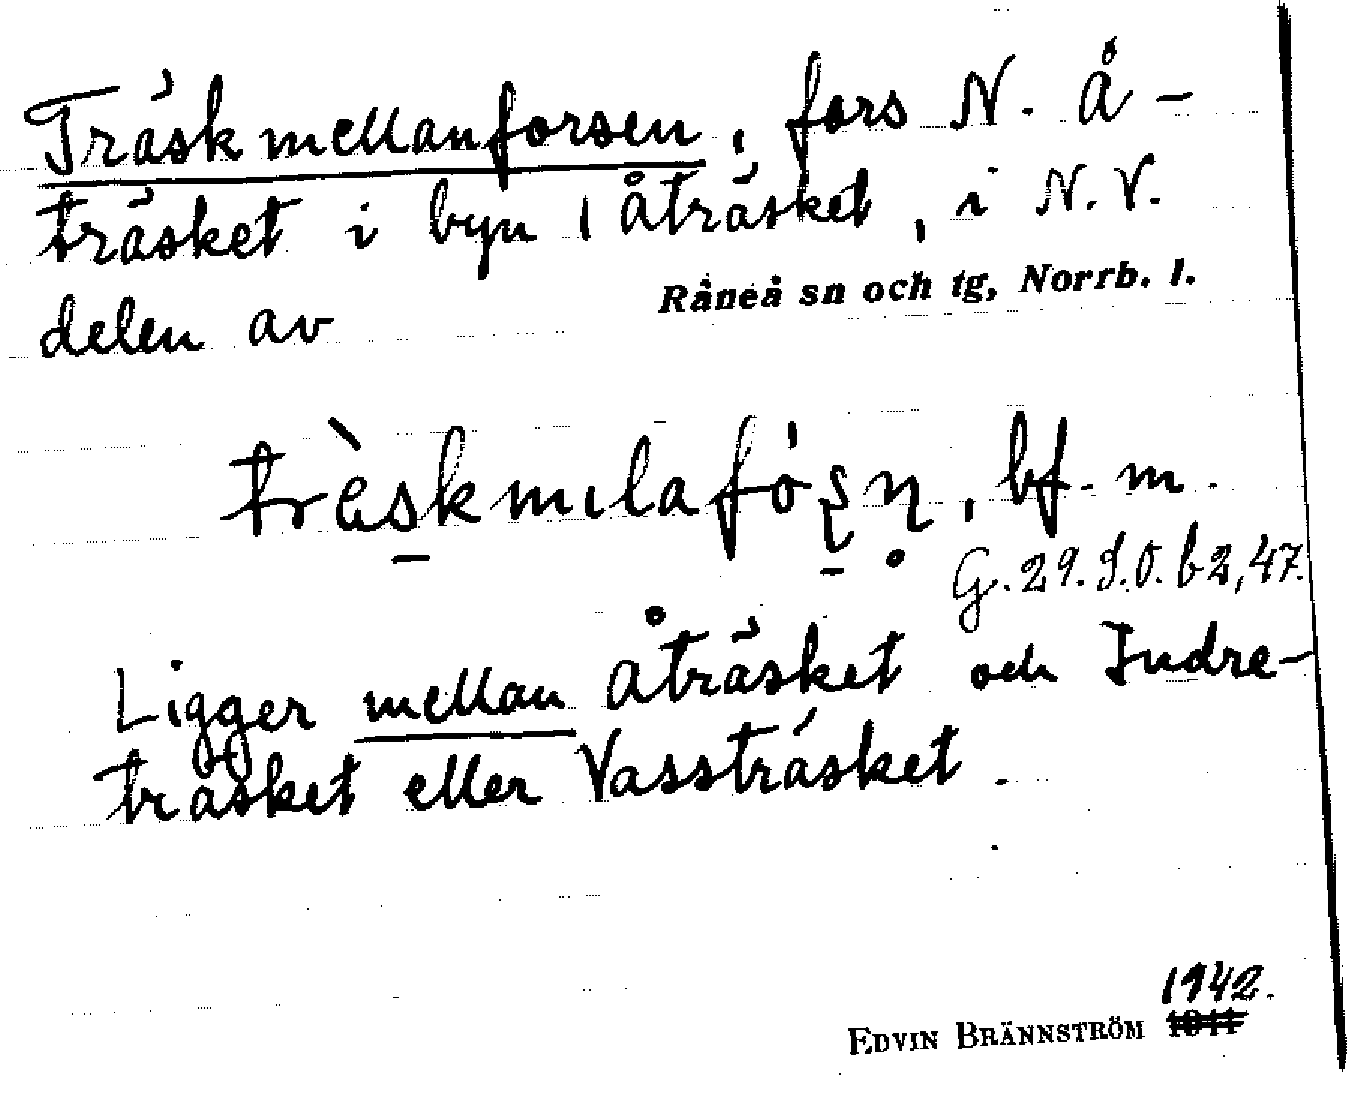 Träskmellanforsen, fors N. Å-
träsket i byn Åträsket, i N.V.
delen av Råneå sn och tg, Norrb. l.
träskmılafós̨n̥, bf. m.
G. 29. S.O. b2, 47.
Ligger mellan Åträsket och Indre-
träsket eller Vassträsket.
1942.
EDVIN BRÄNNSTRÖM 1941